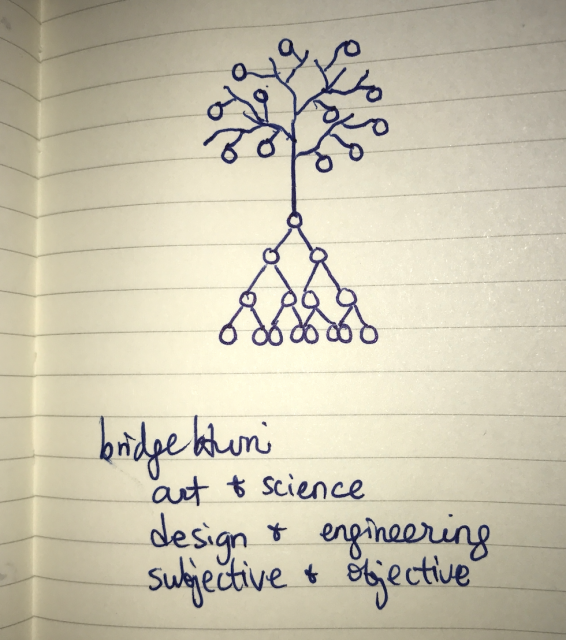 bridge btwn
art & science
design & engineering
subjective & objective